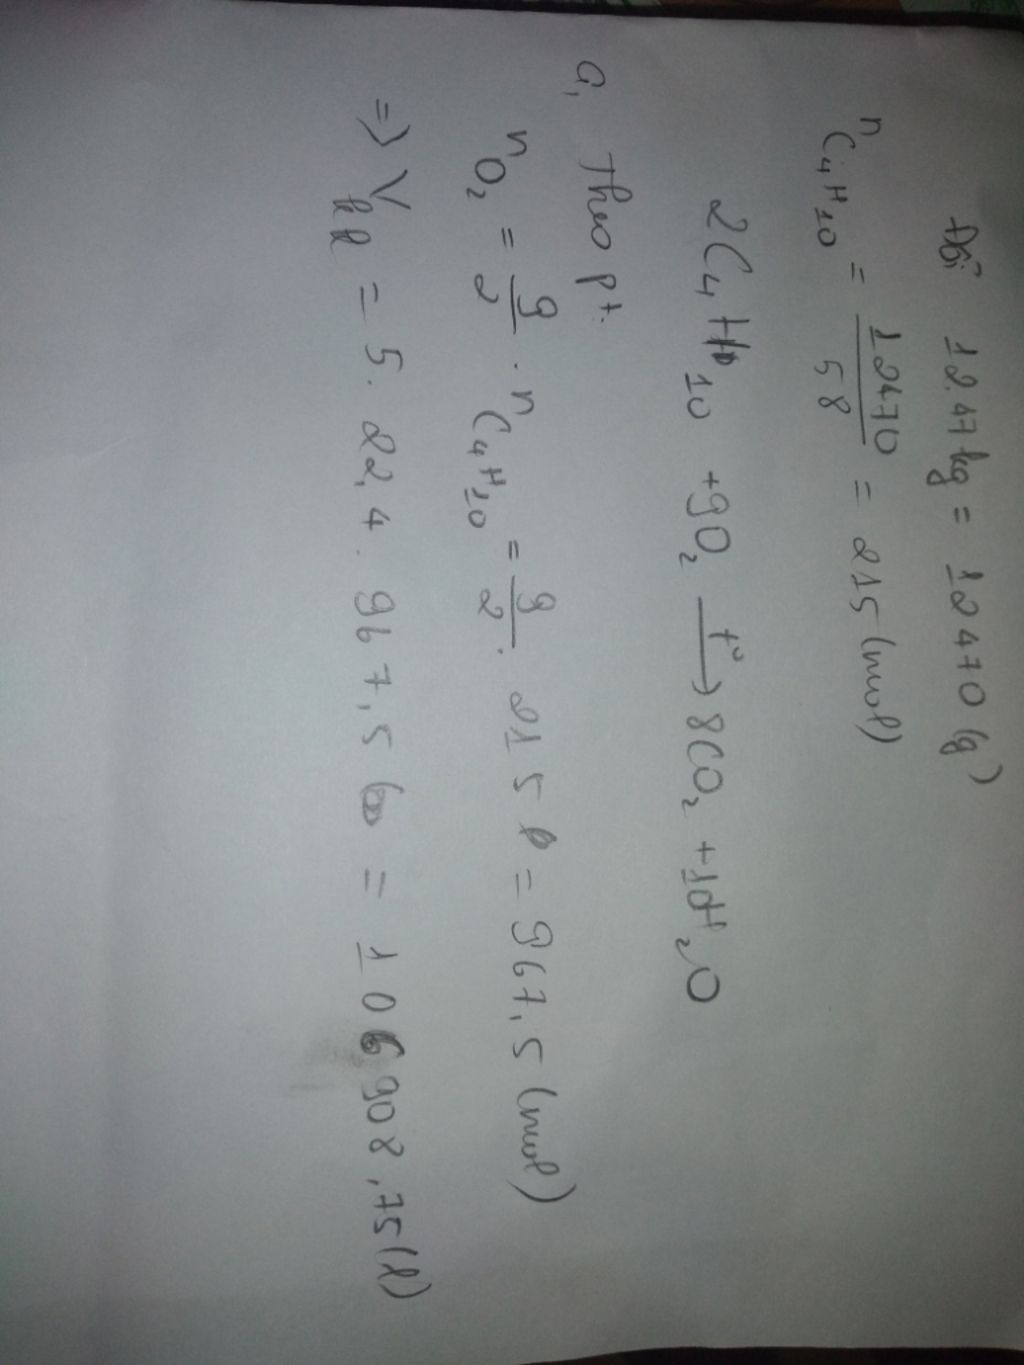 Đổi 12.47 kg = 12470 (g)
nC₄H₁₀ = 12470/58 = 215 (mol)
2C₄H₁₀ + 9O₂ t°→ 8CO₂ + 10H₂O
a, Theo pt:
nO₂ = 9/2 . nC₄H₁₀ = 9/2 . 215 = 967,5 (mol)
=> Vkk = 5. 22,4. 967,5 = 106908,75 (l)